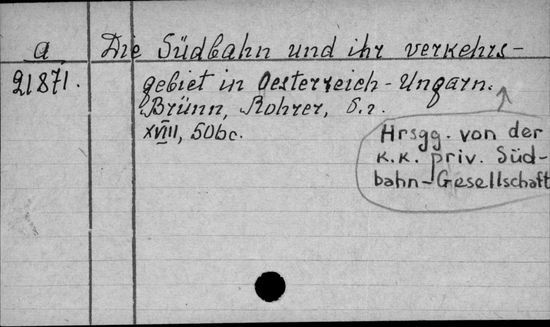 a Die Südbahn und ihr verkehrs-
21871. gebiet in Oesterreich-Ungarn.
Brünn, Rohrer,
XVIII, 506c.
Hrsgg. von der
K.K. priv. Süd-
bahn-Gesellschaft